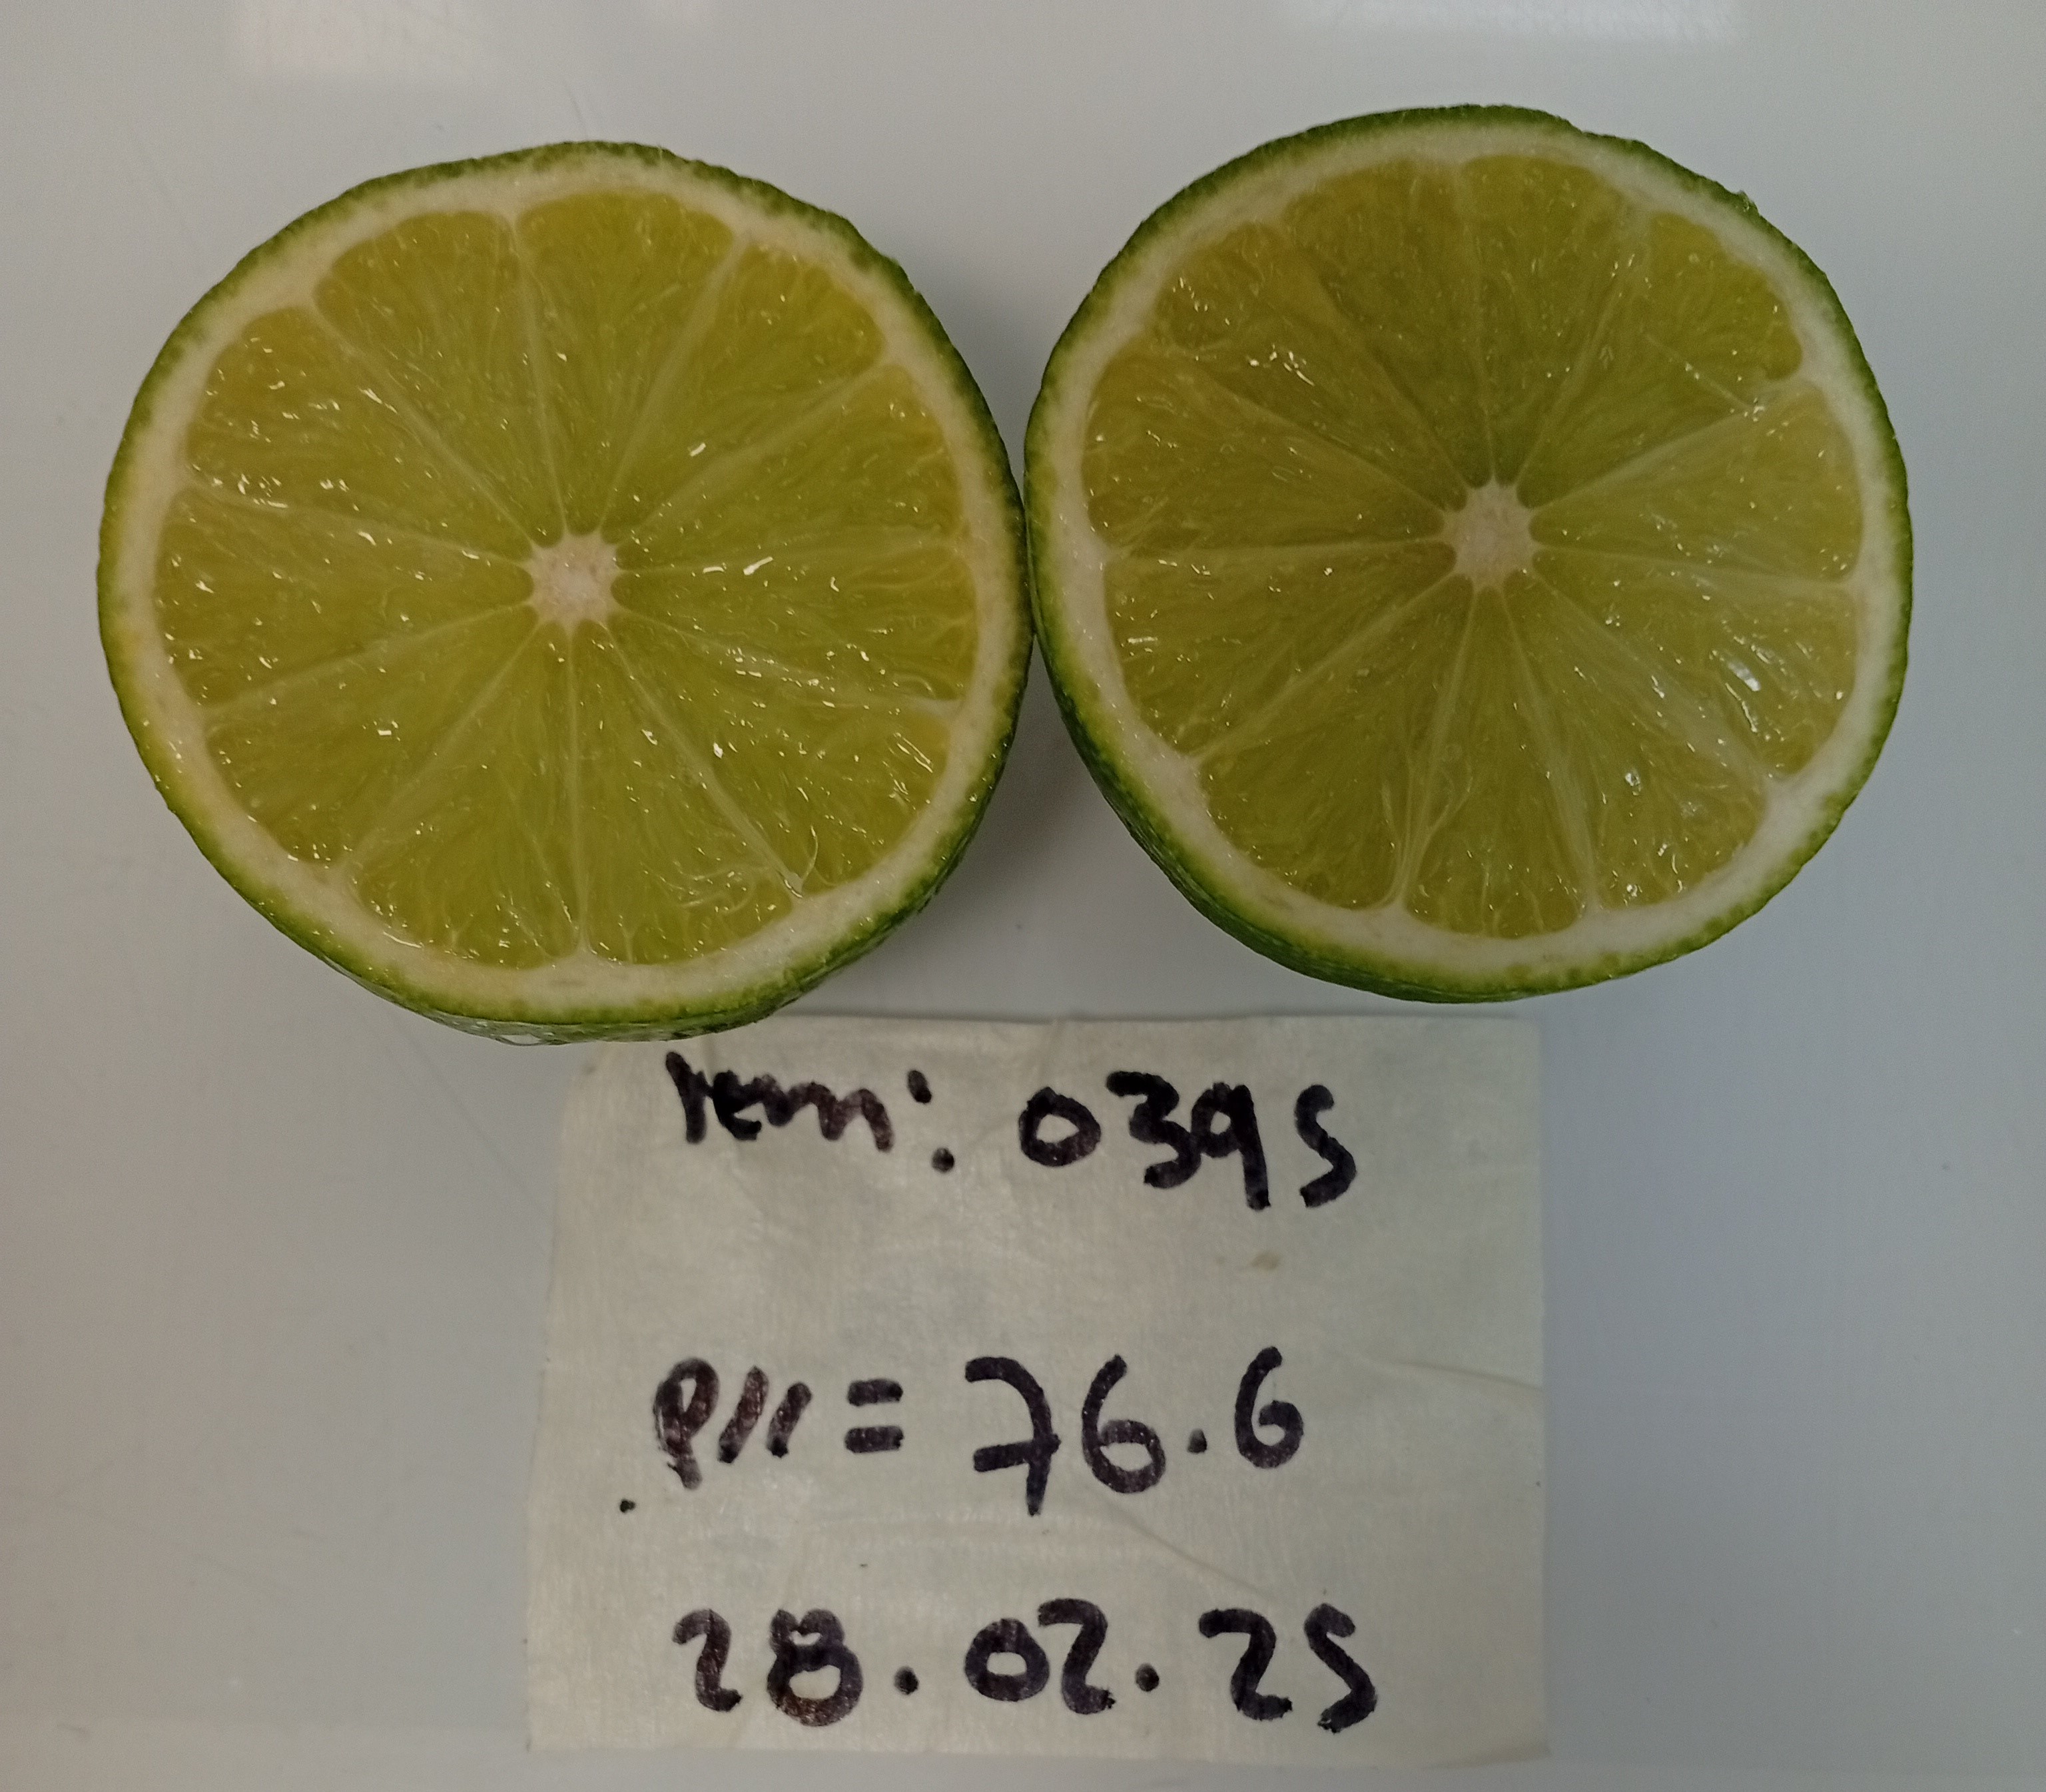 Item: 0395
PM = 76.6
28.02.25